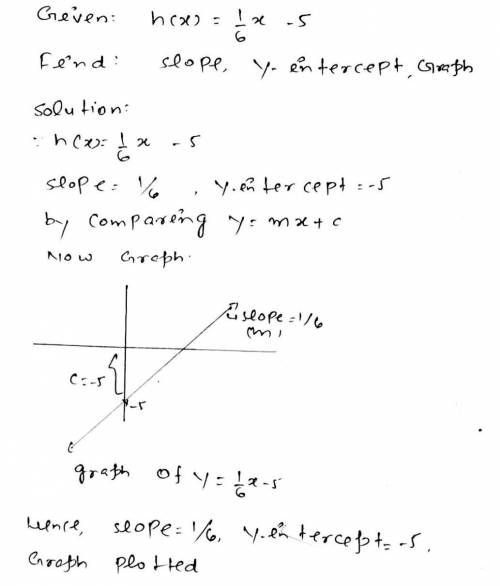 Given: h(x) = 1/6 x - 5
Find: slope, y-intercept, Graph
Solution:
∵ h(x) = 1/6 x - 5
slope = 1/6, y-intercept = -5
by comparing y = mx + c
Now Graph.
slope = 1/6
(m)
c = -5
-5
graph of y = 1/6 x - 5
Hence, slope = 1/6, y-intercept = -5,
Graph plotted